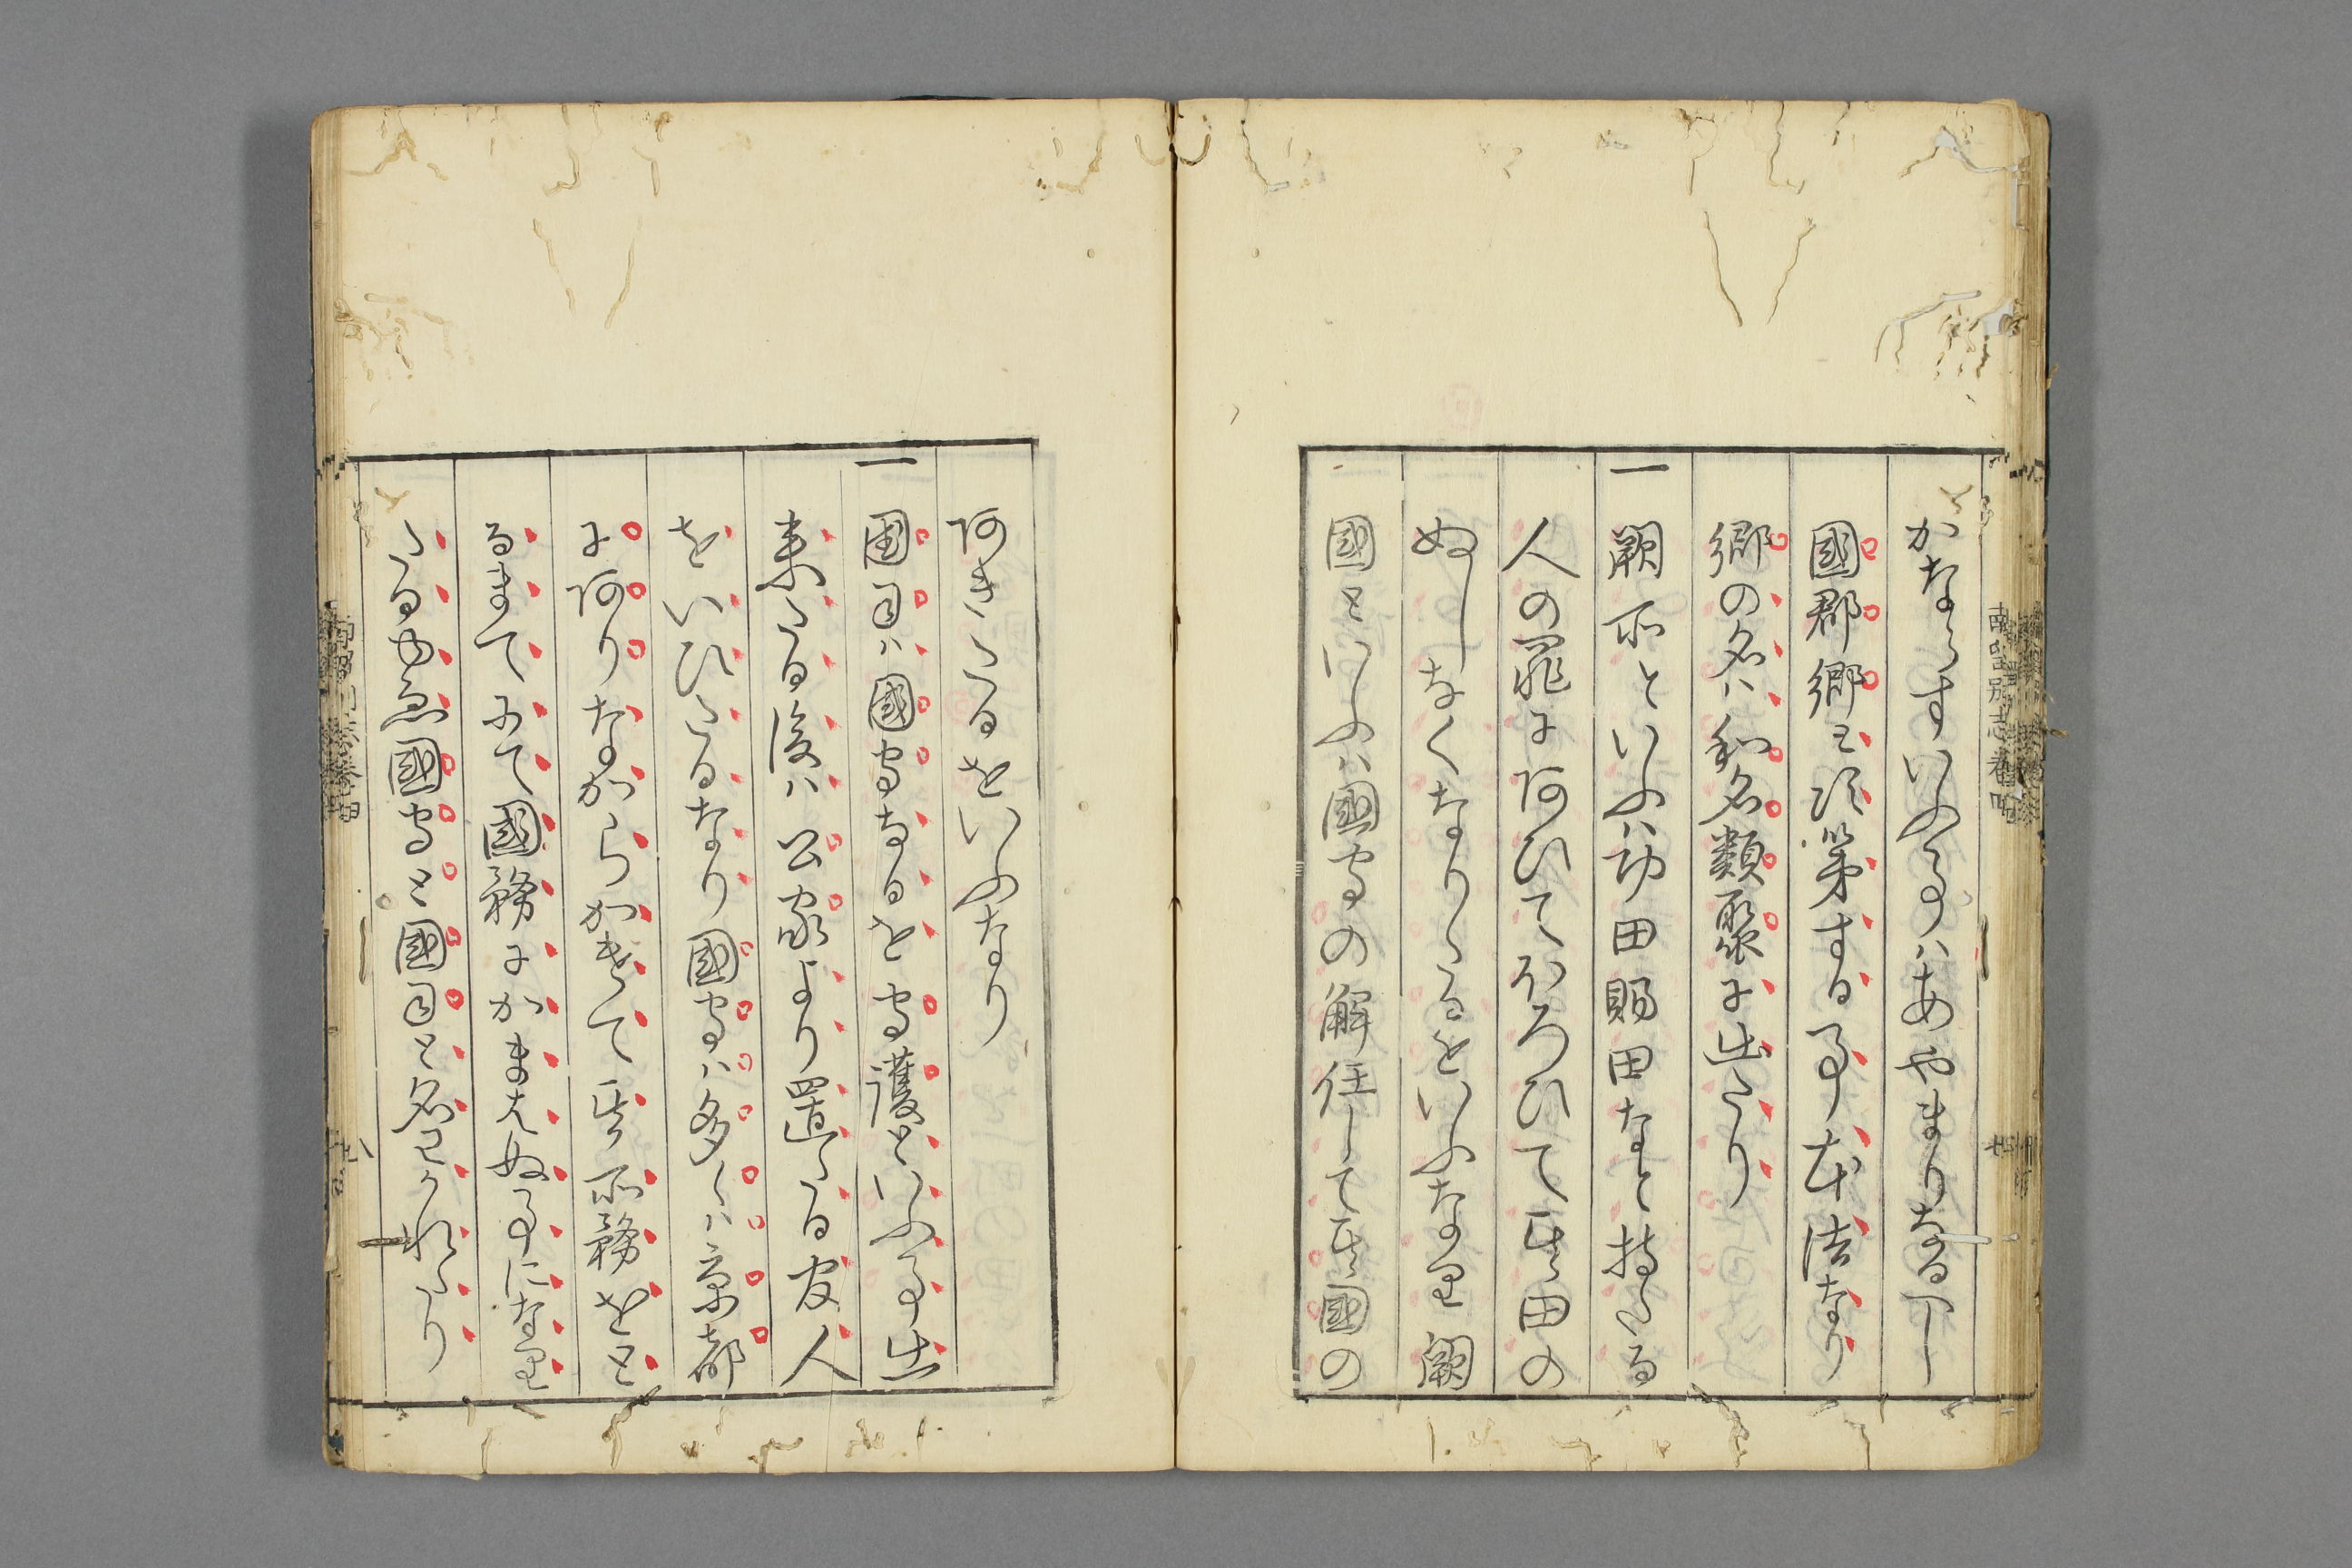 かならすいふ事ハあやまりなるへし
國郡郷と次第する事本法なり
郷の名ハ和名類聚に出たり
一 闕所といふハ功田賜田なと持たる
人の罪に阿ひてほろひて其田の
ぬしなくなりたるをいふなり闕
國といふハ國守の解任して其國の
阿きたるをいふなり
一 国司ハ國守なるを守護といふ事出
来たる後ハ公家より置たる官人
をいひたるなり國守ハ多くハ京都
に阿りなからかきて其所務をと
るまてにて國務にかまえぬ事になり
たるゆゑ國守と國司と名わかれたり
南留別志巻四